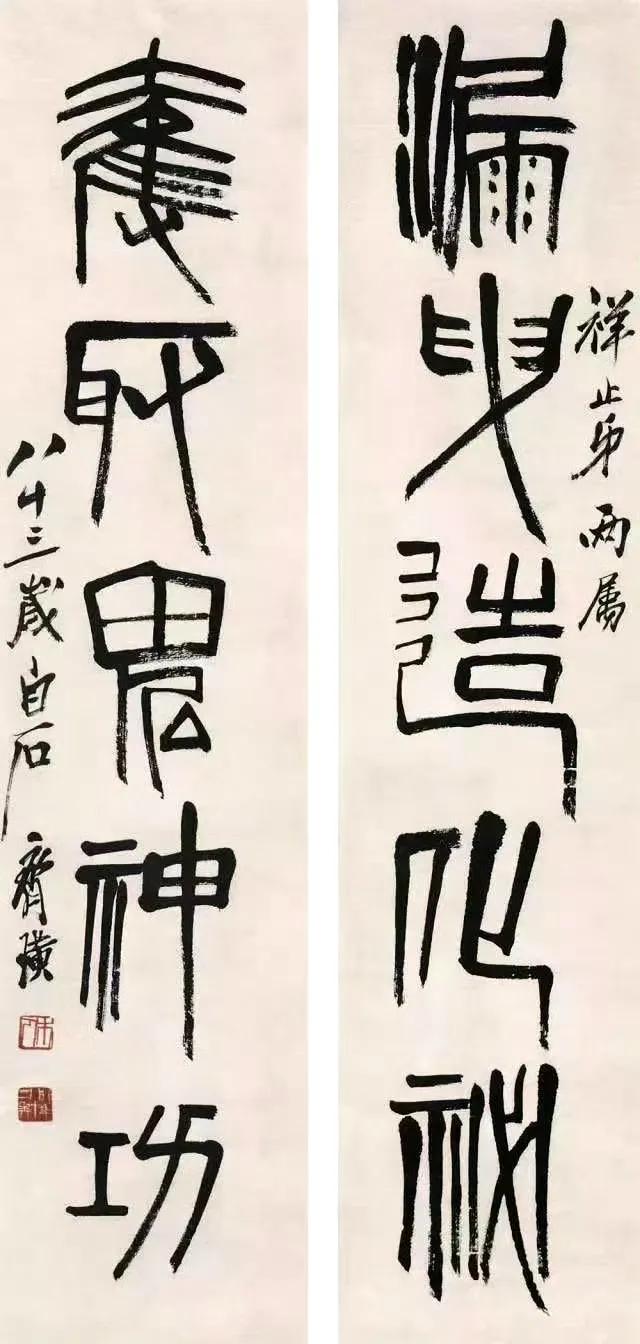 祥止弟两属
漏曳造化秘
奪取鬼神功
八十三歲白石齊璜